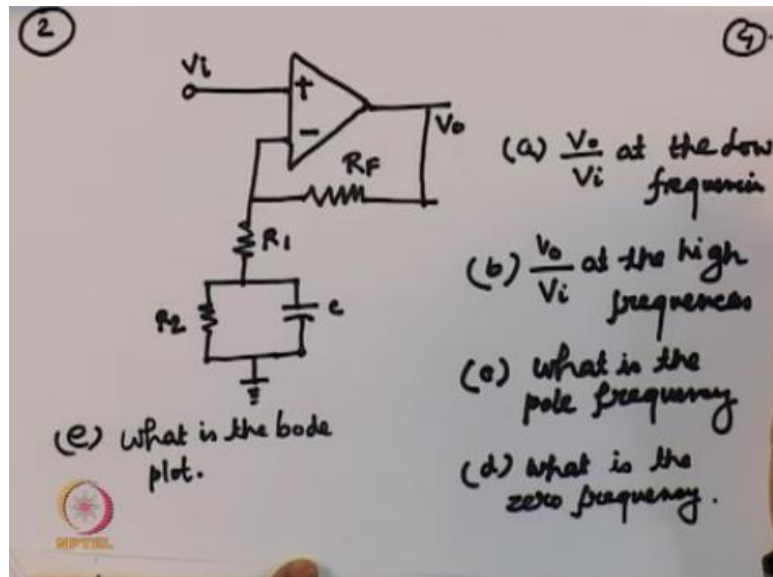 2
4
Vi
+
-
Vo
RF
R1
R2
c
(a) Vo
Vi
at the low
frequencies
(b) Vo
Vi
at the high
frequences
(c) what is the
pole frequency
(d) what is the
zero frequency.
(e) what is the bode
plot.
NPTEL